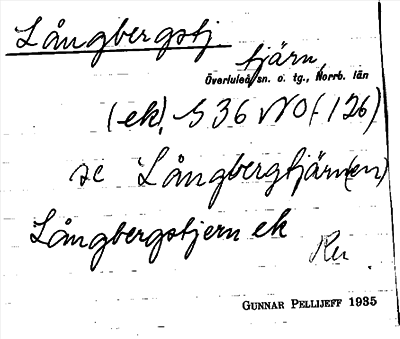 Långbergstj.
tjärn
Överluleå sn. o. tg., Norrb. län
(ek), S 36 NO (126)
se Långbergtjärn(en)
Långbergstjern ek
GUNNAR PELLIJEFF 1935